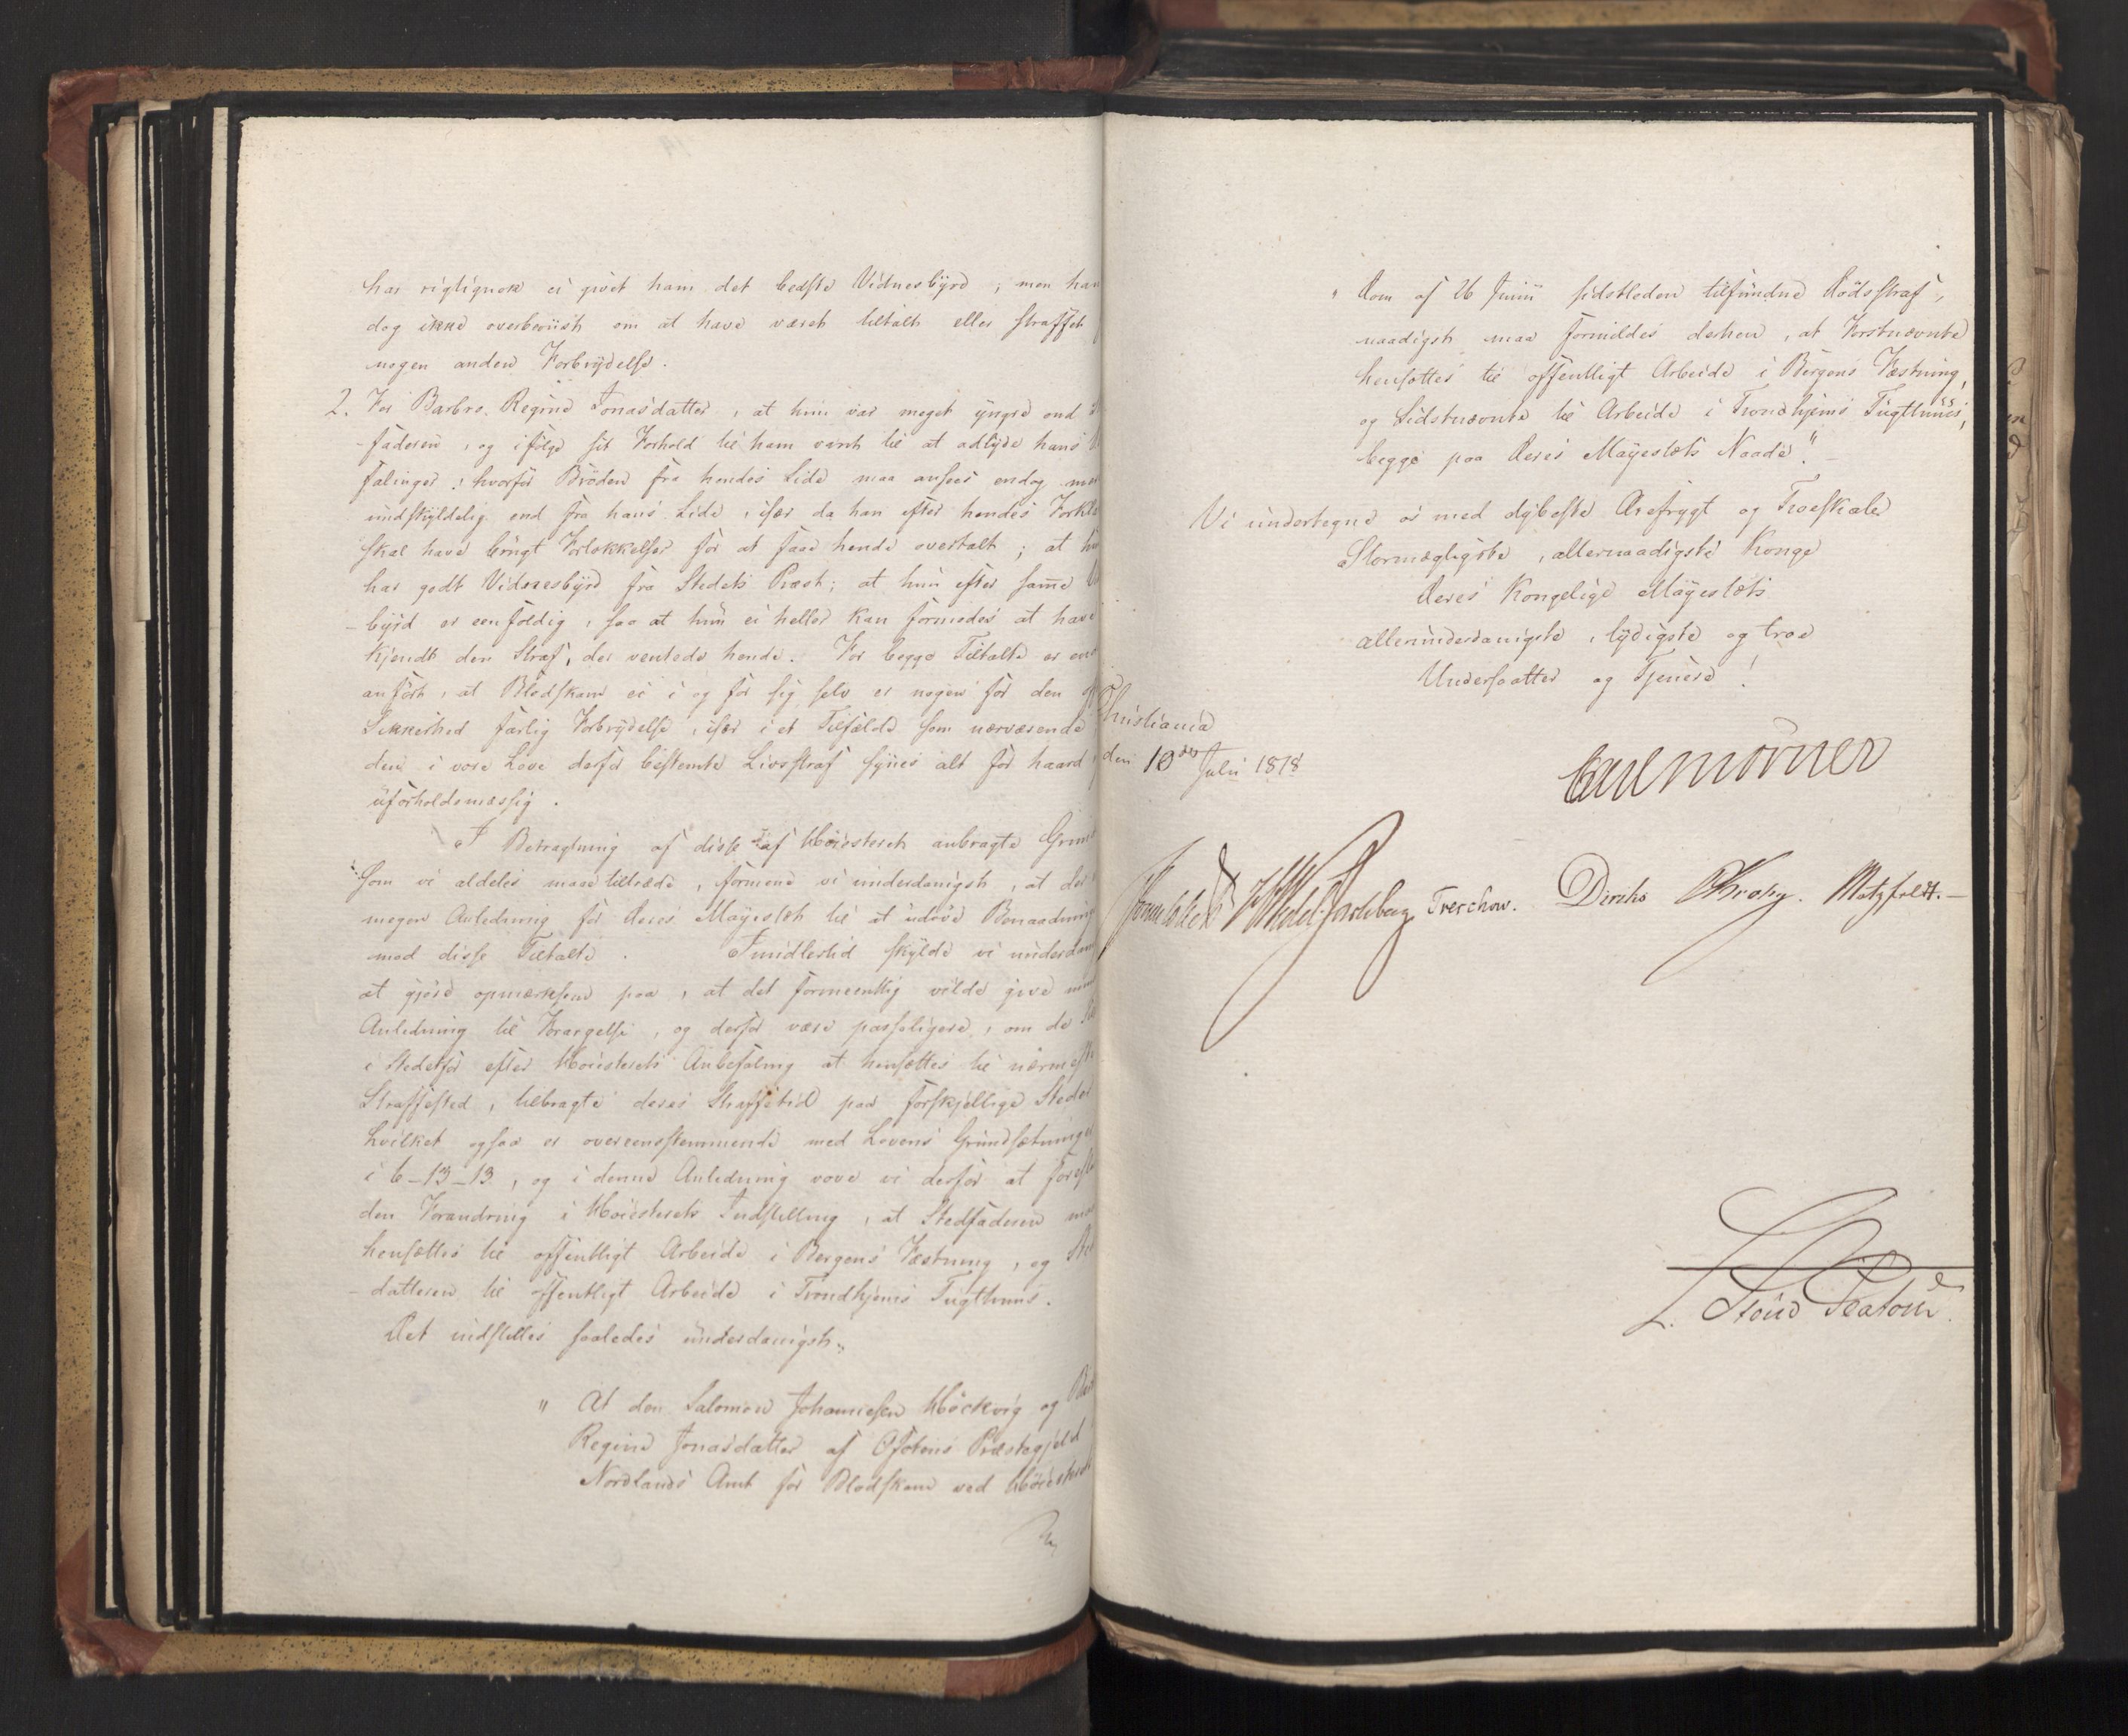 har rigtignok ei givet ham det bedste Vidnesbyrd; men han
dog ikke overbeviist om at have været tiltalt eller straffet
nogen anden Forbrydelse.
2. For Barbro Regine Jonasdatter, at hun var meget yngre end
-faderen, og ifølge sit Forhold til ham vant til at adlyde hans
falinger; hvorfor Brøden fra hendes Side maa ansees endog
undskyldelig end fra hans Side, især da han efter hendes
skal have brugt Forlokkelser for at faae hende overtalt; at
har godt Vidnesbyrd fra Stedets Præst; at hun efter samme
-byrd er eenfoldig, saa at hun ei heller kan formodes at have
kjendt den Straf, der ventede hende. For begge Tiltalte er
anført, at Blodskam ei i og for sig selv er nogen for den
Sikkerhed farlig Forbrydelse, især i et Tilfælde som nærværende
den i vore Love derfor bestemte Livsstraf synes alt for haard
uforholdsmæssig.
I Betragtning af disse af Høiesteret anbragte
som vi aldeles maae tiltræde, formene vi underdanigst, at der
megen Anledning for Deres Mayestæt til at udøve Benaadning
mod disse Tiltalte. Imidlertid skylde vi
at gjøre opmærksom paa, at det formeentlig vilde give
Anledning til Forargelse, og derfor være passeligere, om de
i Stedetfor efter Høiesterets Anbefaling at hensættes til nærmeste
Straffested, tilbragte deres Straffetid paa forskjellige Steder
hvilket ogsaa er overeensstemmende med Lovens Grundsætninger
i 6-13-13, og i denne Anledning vove vi derfor at
den Forandring i Høiesterets Indstilling, at Stedfaderen
hensættes til offentligt Arbeide i Bergens Fæstning, og
-datteren til offentligt Arbeide i Trondhjems Tugthuus.
Det indstilles saaledes underdanigst:
" At den Salomon Johannesen Høckvig og
Regine Jonasdatter af Ofotens Præstegjeld
Nordlands Amt for Blodskam ved Høiesterets
" Dom af 26 Junii sidstleden tilfundne Dødsstraf,
naadigst maa formildes derhen, at Førstnævnte
hensættes til offentligt Arbeide i Bergens Fæstning,
og Sidstnævnte til Arbeide i Trondhjems Tugthuus,
begge paa Deres Mayestæts Naade".
Vi undertegne os med dybeste Ærefrygt og Troeskab
Stormægtigste, allernaadigste Konge
Deres Kongelige Mayestæts
allerunderdanigste, lydigste og troe
Undersaatter og Tjenere!
Christiania
den 10de Julii 1818
Carl Mörner
Sommerhielm HWedel Jarlsberg Treschow. Diriks Krohg. Motzfeldt.
L.